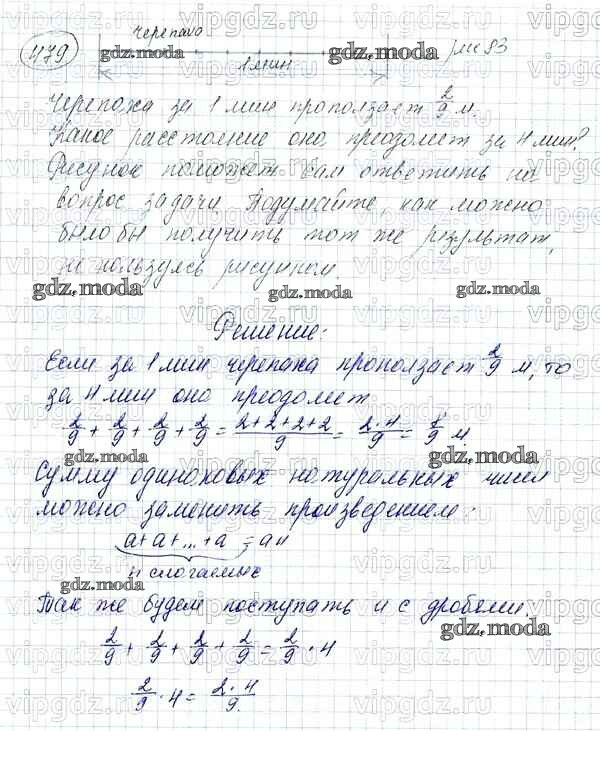 479
черепаха
gdz.moda
gdz.moda
рис 83
1 мин
Черепаха за 1 мин проползает 2/9 м.
Какое расстояние она преодолеет за 4 мин?
Рисунок поможет Вам ответить на
вопрос задачи. Подумайте, как можно
было бы получить тот же результат,
не пользуясь рисунком.
gdz.moda
gdz.moda
gdz.moda
Решение:
Если за 1 мин черепаха проползает 2/9 м, то
за 4 мин она преодолеет
2/9 + 2/9 + 2/9 + 2/9 = (2+2+2+2)/9 = (2·4)/9 = 8/9 м.
gdz.moda
gdz.moda
Сумму одинаковых натуральных чисел
можно заменить произведением:
a+a+...+a = an
n слагаемых
gdz.moda
Так же будем поступать и с дробями.
gdz.moda
2/9 + 2/9 + 2/9 + 2/9 = 2/9 · 4
2/9 · 4 = (2·4)/9.
vipgdz.ru